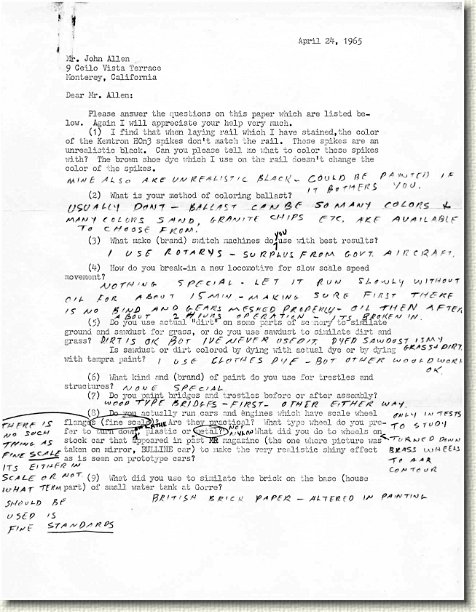 April 24, 1965
Mr. John Allen
9 Cello Vista Terrace
Monterey, California
Dear Mr. Allen:
Please answer the questions on this paper which are listed be-
low. Again I will appreciate your help very much.
(1) I find that when laying rail which I have stained, the color
of the Kemtron HOn3 spikes don't match the rail. These spikes are an
unrealistic black. Can you please tell me what to color these spikes
with? The brown shoe dye which I use on the rail doesn't change the
color of the spikes.
MINE ALSO ARE UNREALISTIC BLACK - COULD BE PAINTED IF
IT BOTHERS YOU.
(2) What is your method of coloring ballast?
USUALLY DONT - BALLAST CAN BE SO MANY COLORS &
MANY COLORS SAND, GRANITE CHIPS ETC. ARE AVAILABLE
TO CHOOSE FROM.
(3) What make (brand) switch machines do you use with best results?
I USE ROTARYS - SURPLUS FROM GOVT. AIRCRAFT.
(4) How do you break-in a new locomotive for slow scale speed
movement?
NOTHING SPECIAL - LET IT RUN SLOWLY WITHOUT
OIL FOR ABOUT 15 MIN - MAKING SURE FIRST THERE
IS NO BIND AND GEARS MESHED PROPERLY - OIL THEN AFTER
ABOUT 2 HOURS OPERATION - ITS BROKEN IN.
(5) Do you use actual "dirt" on some parts of scenery to similate
ground and sawdust for grass, or do you use sawdust to similate dirt and
grass? DIRT IS OK BUT IVE NEVER USED IT. DYED SAWDUST IS MY
GRASS & DIRT
Is sawdust or dirt colored by dying with actual dye or by dying
with tempra paint? I USE CLOTHES DYE - BUT OTHER WOULD WORK
OK
(6) What kind and (brand) of paint do you use for trestles and
structures? NONE SPECIAL
(7) Do you paint bridges and trestles before or after assembly
WOOD TYPE BRIDGES - FIRST - OTHER EITHER WAY
(8) Do you actually run cars and engines which have scale wheel
flanges (fine scale) Are they practical? What type wheel do you pre-
fer to turn down plastic or metal? What did you do to wheels on
stock car that appeared in past MR magazine (the one where picture was
taken on mirror, BULLINE car) to make the very realistic shiny effect
as is seen on prototype cars?
ONLY IN TESTS
TO STUDY
TURNED DOWN
BRASS WHEELS
TO AAR
CONTOUR
THERE IS
NO SUCH
THING AS
FINE SCALE
ITS EITHER IN
SCALE OR NOT
WHAT TERM
SHOULD BE
USED IS
FINE STANDARDS
(9) What did you use to similate the brick on the base (house
part) of small water tank at Gorre?
BRITISH BRICK PAPER - ALTERED IN PAINTING